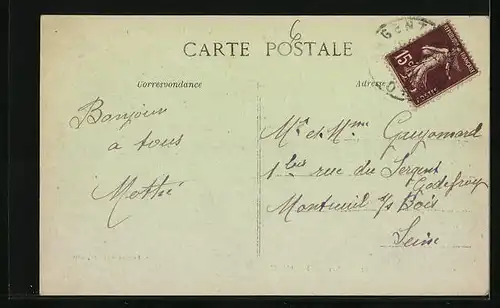 6
CARTE POSTALE
Correspondance
Adresse
GENT
15c
Bonjour
à tous
Mothé
Mr et Mme Guyomard
1 bis rue du Sergent
Godefroy
Montreuil s/s Bois
Seine